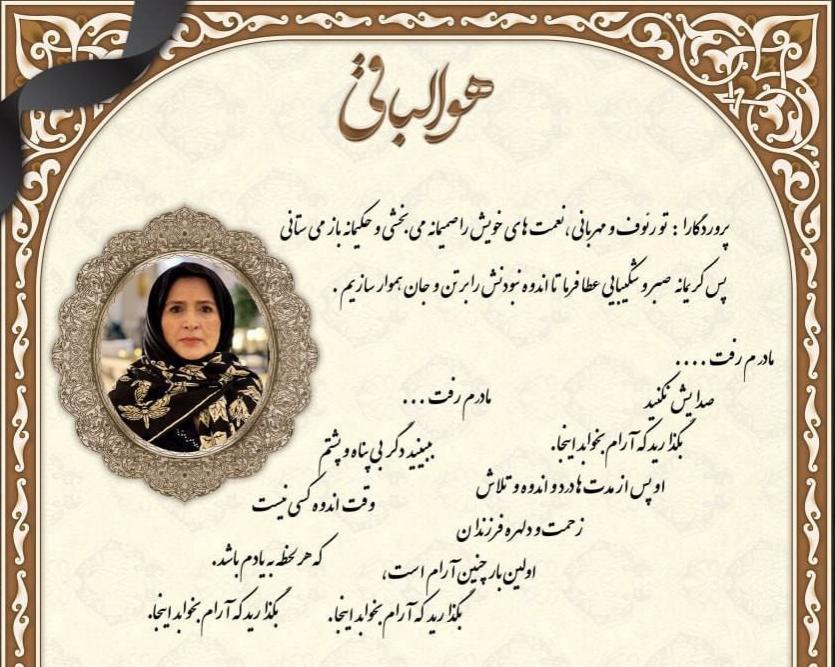 هوالباقی
پروردگارا : تو رئوف و مهربانی ، نعمت های خویش را صمیمانه می بخشی و حکیمانه باز می ستانی
پس کریمانه صبر و شکیبایی عطا فرما تا اندوه نبودنش را بر تن و جان هموار سازیم .
مادرم رفت ....
صدایش نکنید
بگذارید که آرام بخوابد اینجا.
او پس از مدت ها درد و اندوه و تلاش
زحمت و دلهره فرزندان
اولین بار چنین آرام است،
بگذارید که آرام بخوابد اینجا.
مادرم رفت ...
ببینید دگر بی پناه و پشتم
وقت اندوه کسی نیست
که هر لحظه به یادم باشد.
بگذارید که آرام بخوابد اینجا.